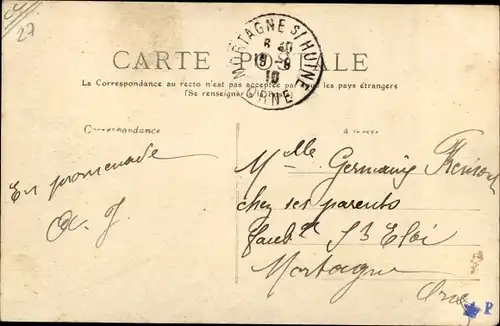 27
CARTE POSTALE
La Correspondance au recto n'est pas acceptée par tous les pays étrangers
(Se renseigner
MORTAGNE S/HUINE
6 30
19-8
10
ORNE
Correspondance
Adresse
En promenade
Mlle Germaine
chez ses parents
faubg St Eloi
Mortagne
Orne
P